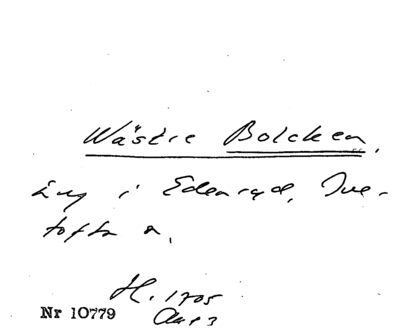 Wästre Bolcken,
Äng i Edenryd, Ive-
tofta sn.
H. 1705
Akt 3
Nr 10779